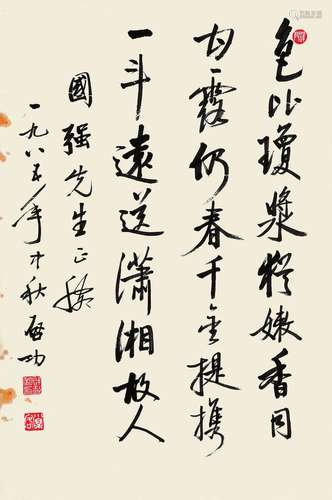 色比瓊漿猶嫩香同
甘露仍春千金提携
一斗遠送瀟湘故人
國强先生正
一九八五年秋啟功